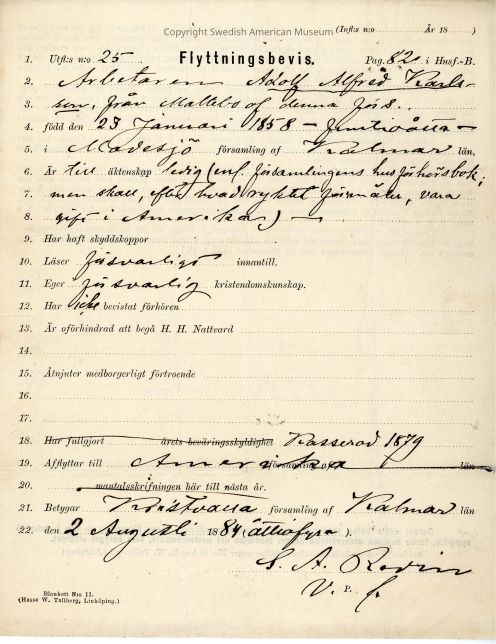 Copyright Swedish American Museum
(Infl: n:o År 18 )
1. Utfl: n:o 25 Flyttningsbevis. Pag. 82 i Husf.-B.
2. Arbetaren Adolf Alfred Karls-
3. son, från Mattebo of denna förs..
4. född den 23 Januari 1858 — femtioåtta —
5. i Madesjö församling af Kalmar län,
6. Är till äktenskap ledig (enl. församlingens husförhörsbok;
7. men skall, efter hvad ryktet förmäler, vara
8. gift i Amerika) —
9. Har haft skyddskoppor
10. Läser försvarligt innantill.
11. Eger försvarlig kristendomskunskap.
12. Har icke bevistat förhören
13. Är oförhindrad att begå H. H. Nattvard
14.
15. Åtnjuter medborgerligt förtroende
16.
17.
18. Har fullgjort årets beväringsskyldighet Kasserad 1879
19. Afflyttar till Amerika församling af län
20. mantalsskrifningen här till nästa år.
21. Betygar Kristvalla församling af Kalmar län
22. den 2 Augusti 1884 (åttiofyra).
S. A.
V. P.
Blankett N:o 11.
(Hasse W. Tullberg, Linköping.)